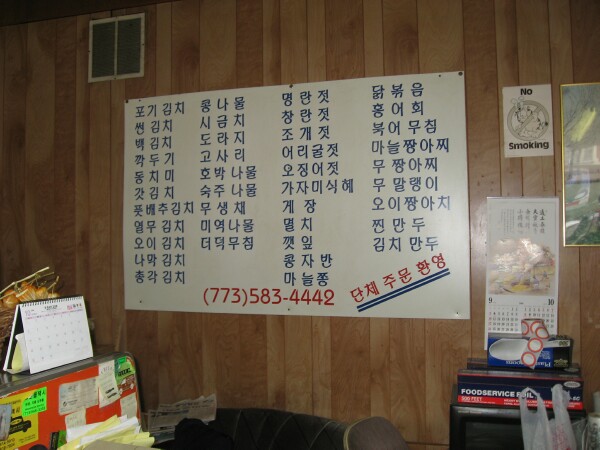 포기김치
썬김치
백김치
깍두기
동치미
갓김치
풋배추김치
열무김치
오이김치
나막김치
총각김치
콩나물
시금치
도라지
고사리
호박나물
숙주나물
무생채
미역나물
더덕무침
명란젓
창란젓
조개젓
어리굴젓
오징어젓
가자미식혜
게장
멸치
깻잎
콩자반
마늘쫑
닭볶음
홍어회
북어무침
마늘짱아찌
무짱아찌
무말랭이
오이짱아치
찐만두
김치만두
(773)583-4442
단체 주문 환영
No
Smoking
9
10
FOODSERVICE FOIL